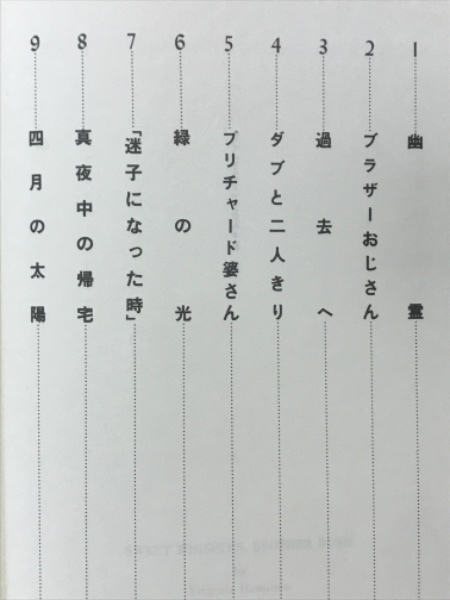 1 幽霊
2 ブラザーおじさん
3 過去へ
4 ダブと二人きり
5 プリチャード婆さん
6 緑の光
7 「迷子になった時」
8 真夜中の帰宅
9 四月の太陽